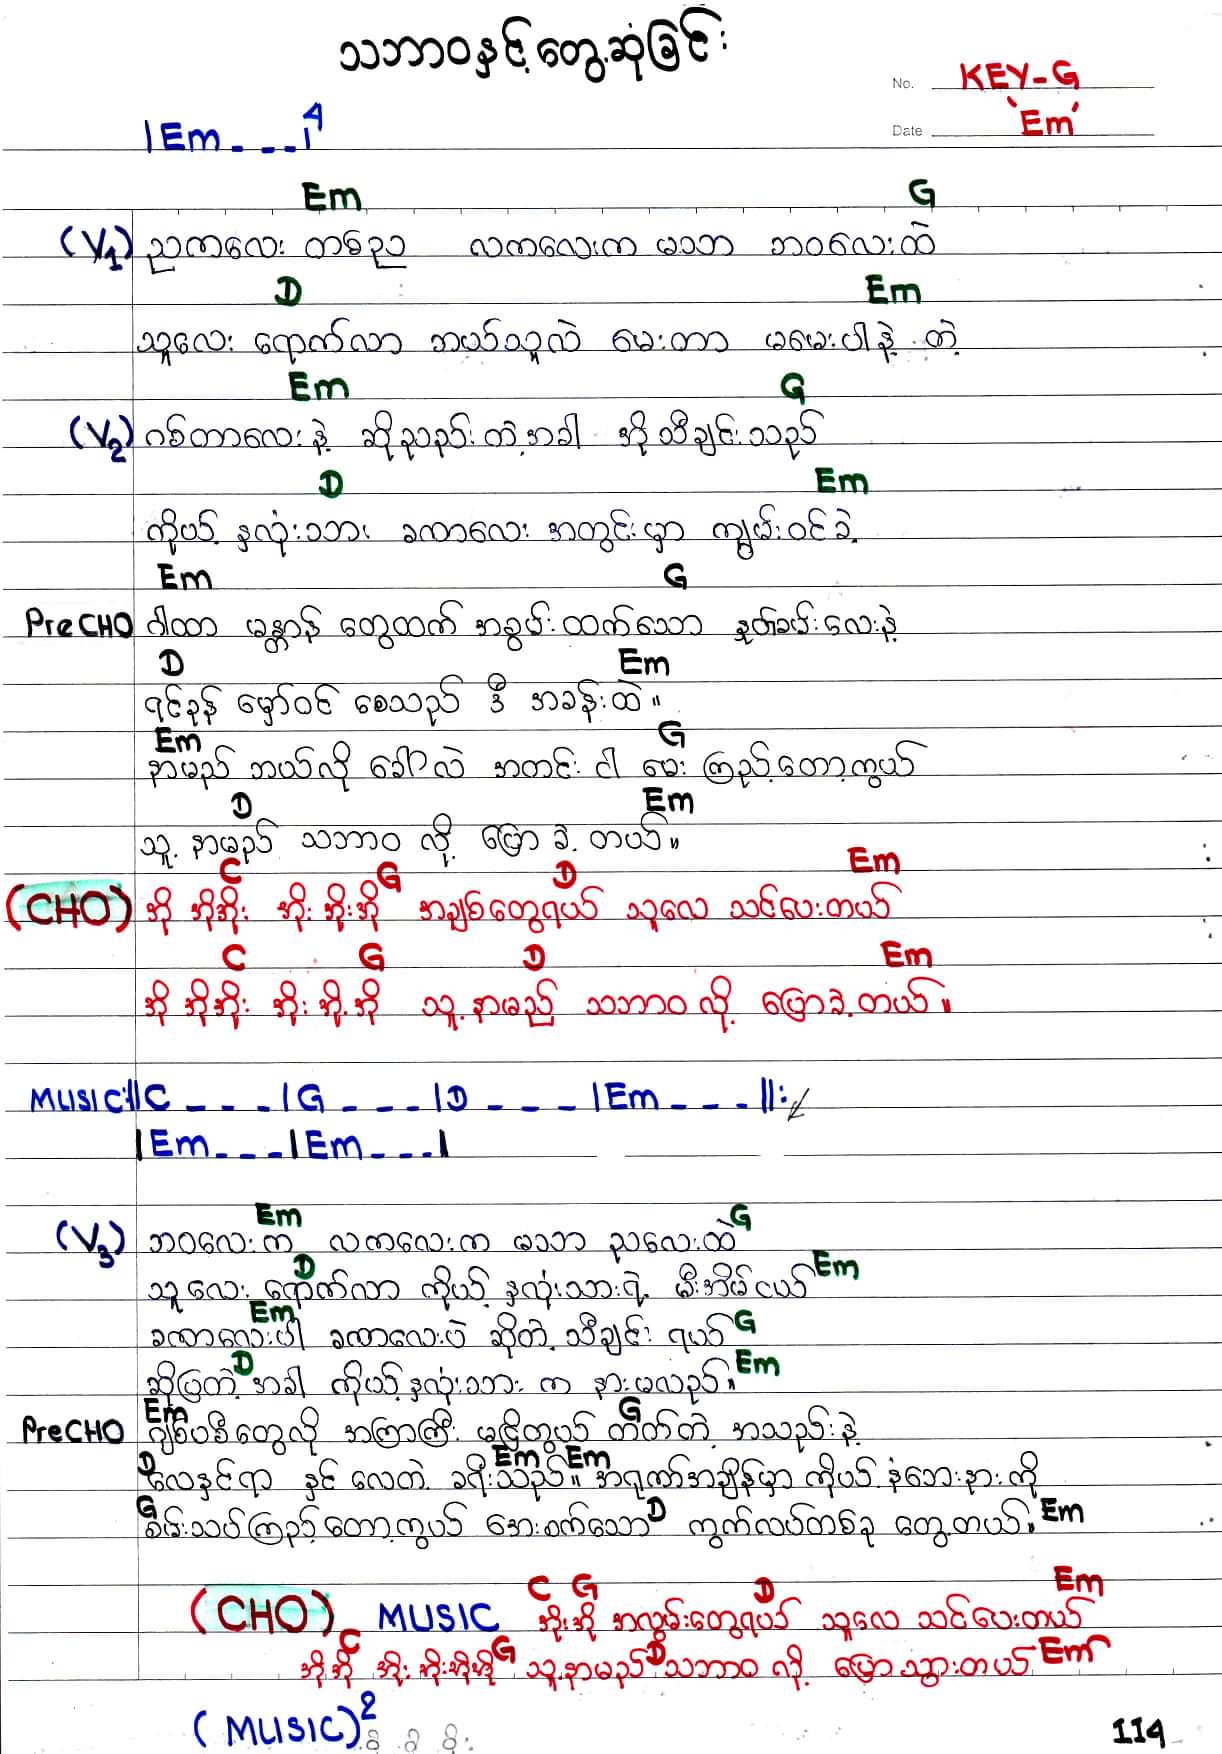 သဘာဝနှင့်တွေ့ဆုံခြင်း
No. KEY-G
Date 'Em'
|Em _ _ _|4
Em G
(V1) ညကလေး တစ်ည လကလေးက မသာ ဘဝလေးထဲ
D Em
သူလေး ရောက်လာ ဘယ်သူလဲ မေးတာ မမေးပါနဲ့ တဲ့
Em G
(V2) ဂစ်တာလေးနဲ့ ဆိုညည်းတဲ့အခါ အိုသီချင်းသည်
D Em
ကိုယ့် နှလုံးသား ခဏာလေး အတွင်းမှာ ကျွမ်းဝင်ခဲ့
Em G
PreCHO ဂါထာ မန္တာန် တွေထက် အစွမ်းထက်သော နှုတ်ခမ်းလေးနဲ့
D Em
ရင်ခုန် မှော်ဝင် စေသည် ဒီ အခန်းထဲ။
Em G
နာမည် ဘယ်လို ခေါ်လဲ အတင်း ငါ မေး ကြည့်တော့ကွယ်
D Em
သူ့ နာမည် သဘာဝ လို့ ပြော ခဲ့ တယ်။
C G D Em
(CHO) အို အိုအိုး အိုး အိုးအို အချစ်တွေရယ် သူလေ သင်ပေးတယ်
C G D Em
အို အိုအိုး အိုး အို့အို သူ့နာမည် သဘာဝ လို့ ပြောခဲ့တယ်။
MUSIC:||C _ _ _|G _ _ _|D _ _ _|Em _ _ _||:
|Em _ _ _|Em _ _ _|
Em G
(V3) ဘဝလေးက လကလေးက မသာ ညလေးထဲ
D Em
သူလေး ရောက်လာ ကိုယ့် နှလုံးသားရဲ့ မီးအိမ်ငယ်
Em G
ခဏာလေးပါ ခဏာလေးပဲ ဆိုတဲ့ သီချင်း ရယ်
D Em
ဆိုပြတဲ့ အခါ ကိုယ့်နှလုံးသား က နားမလည်။
Em G
PreCHO ဂျစ်ပစီတွေလို အကြာကြီး မငြိတွယ် တတ်တဲ့ အသည်းနဲ့
D Em Em
လေနှင်ရာ နှင် လေတဲ့ ခရီးသည်။ အရုဏ်အချိန်မှာ ကိုယ့် နံဘေးနားကို
G D Em
စမ်းသပ်ကြည့်တော့ကွယ် အေးစက်သော ကွက်လပ်တစ်ခု တွေ့တယ်။
C G D Em
(CHO) MUSIC အိုးအို အလွမ်းတွေရယ် သူလေ သင်ပေးတယ်
C G D Em
အို့အို အိုး အိုးအိုအို သူ့နာမည် သဘာဝ လို့ ပြောသွားတယ်
(MUSIC)2
114